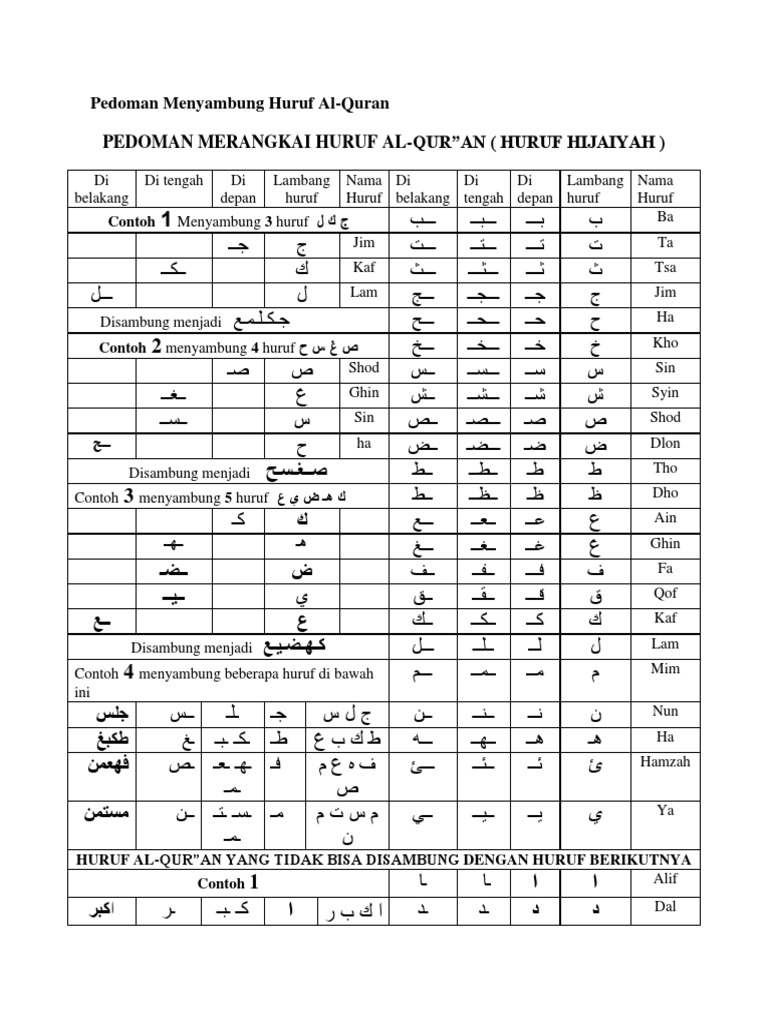 Pedoman Menyambung Huruf Al-Quran
PEDOMAN MERANGKAI HURUF AL-QUR”AN ( HURUF HIJAIYAH )
Di belakang Di tengah Di depan Lambang huruf Nama Huruf Di belakang Di tengah Di depan Lambang huruf Nama Huruf
Contoh 1 Menyambung 3 huruf ج ك ل ـب ـبـ بـ ب Ba
جـ ج Jim ـت ـتـ تـ ت Ta
ـكـ ك Kaf ـث ـثـ ثـ ث Tsa
ـل ل Lam ـج ـجـ جـ ج Jim
Disambung menjadi جـكـلـمـع ـح ـحـ حـ ح Ha
Contoh 2 menyambung 4 huruf ص غ س ح ـخ ـخـ خـ خ Kho
صـ ص Shod ـس ـسـ سـ س Sin
ـغـ ع Ghin ـش ـشـ شـ ش Syin
ـسـ س Sin ـص ـصـ صـ ص Shod
ـج ح ha ـض ـضـ ضـ ض Dlon
Disambung menjadi صـغـسـح ـط ـطـ طـ ط Tho
Contoh 3 menyambung 5 huruf ك هـ ض ي ع ـط ـظـ ظـ ظ Dho
كـ ك ـع ـعـ عـ ع Ain
ـهـ هـ ـغ ـغـ غـ ع Ghin
ـضـ ض ـف ـفـ فـ ف Fa
ـيـ ي ـق ـقـ قـ ق Qof
ـع ع ـك ـكـ كـ ك Kaf
Disambung menjadi كـهـضـيـع ـل ـلـ لـ ل Lam
Contoh 4 menyambung beberapa huruf di bawah ini ـم ـمـ مـ م Mim
جلس ـس ـلـ جـ ج ل س ـن ـنـ نـ ن Nun
طكبغ ـغ ـكـ ـبـ طـ ط ك ب ع ـه ـهـ هـ هـ Ha
فهعمن ـص ـهـ ـعـ ـمـ فـ ف ه ع م ص ـئ ـئـ ئـ ئ Hamzah
مستمن ـن ـسـ ـتـ ـمـ مـ م س ت م ن ـي ـيـ يـ ي Ya
HURUF AL-QUR”AN YANG TIDAK BISA DISAMBUNG DENGAN HURUF BERIKUTNYA
Contoh 1 ـا ـا ا ا Alif
اكبر ـر كـ ـبـ ا ا ك ب ر ـد ـد د د Dal